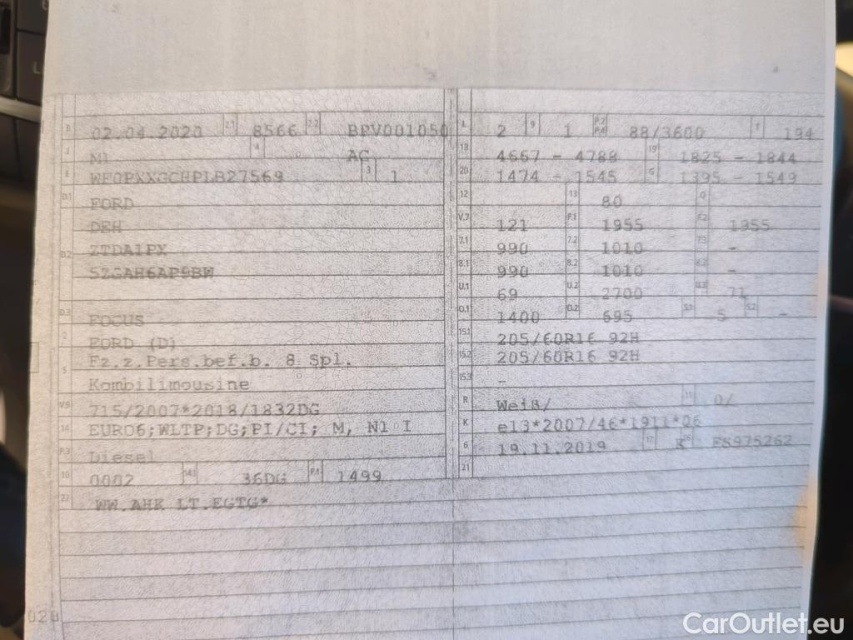 B 02.04.2020 2.1 8566 2.2 BPV001050
J N1 4 AC
E WF0PXXGCHPLB27569 3 1
D.1 FORD
DEH
D.2 ZTDA1PX
5ZGAH6AP9BW
D.3 FOCUS
2 FORD (D)
5 Fz.z.Pers.bef.b. 8 Spl.
Kombilimousine
V.9 715/2007*2018/1832DG
14 EURO6;WLTP;DG;PI/CI; M, N1 I
P.3 Diesel
10 0002 14.1 36DG P.1 1499
22 WW.AHK LT.EGTG*
L 2 9 1 P.2 P.4 88/3600 T 194
18 4667 - 4788 19 1825 - 1844
20 1474 - 1545 G 1395 - 1549
12 13 80 Q
V.7 121 F.1 1955 F.2 1955
7.1 990 7.2 1010 7.3 -
8.1 990 8.2 1010 8.3 -
U.1 69 U.2 2700 U.3 71
O.1 1400 O.2 695 S.1 5 S.2 -
15.1 205/60R16 92H
15.2 205/60R16 92H
15.3 -
R Weiß/ 11 0/
K e13*2007/46*1911*06
6 19.11.2019 17 K 16 FS975262
21
020
CarOutlet.eu